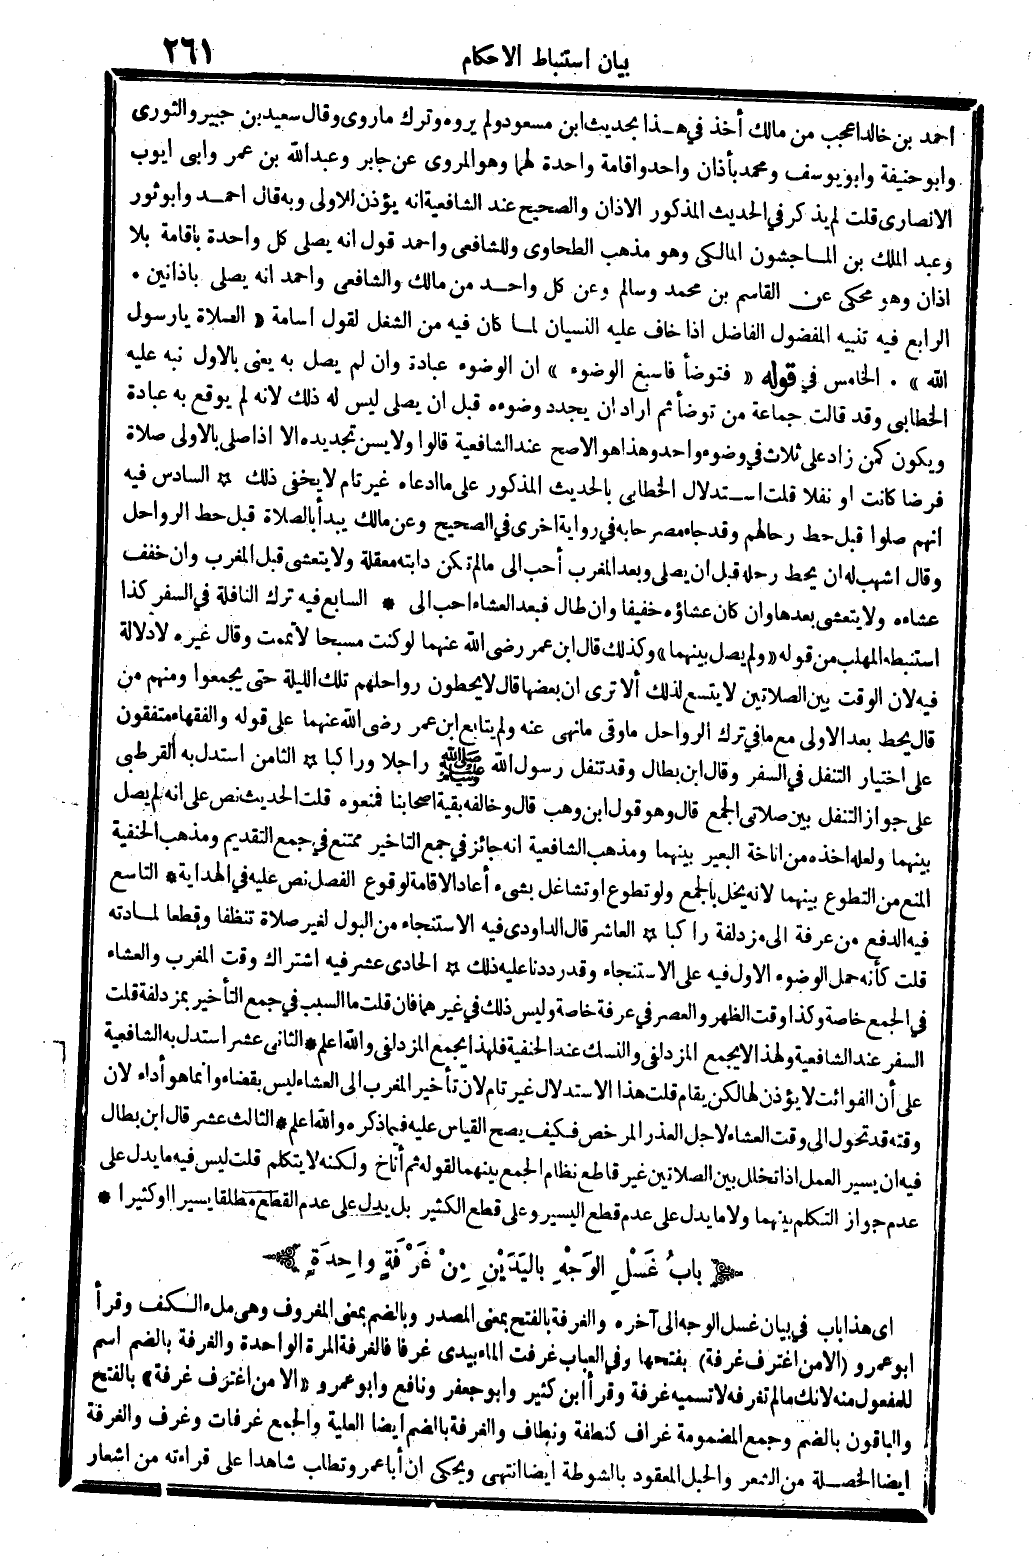 بيان استنباط الاحكام
٢٦١
احمد بن خالد اعجب من مالك أخذ في هذا بحديث ابن مسعود ولم يروه وترك ما روى وقال سعيد بن جبير والثورى
وابو حنيفة وابو يوسف ومحمد بأذان واحد واقامة واحدة لهما وهو المروى عن جابر وعبد الله بن عمر وابى ايوب
الانصارى قلت لم يذكر في الحديث المذكور الاذان والصحيح عند الشافعية انه يؤذن للاولى وبه قال احمد وابو ثور
وعبد الملك بن الماجشون المالكى وهو مذهب الطحاوى وللشافعى واحمد قول انه يصلى كل واحدة باقامة بلا
اذان وهو محكى عن القاسم بن محمد وسالم وعن كل واحد من مالك والشافعى واحمد انه يصلى باذانين *
الرابع فيه تنبيه المفضول الفاضل اذا خاف عليه النسيان لما كان فيه من الشغل لقول اسامة « الصلاة يارسول
الله » . الخامس في قوله « فتوضأ فاسبغ الوضوء » ان الوضوء عبادة وان لم يصل به يعنى بالاول نبه عليه
الخطابى وقد قالت جماعة من توضأ ثم اراد ان يجدد وضوءه قبل ان يصلى ليس له ذلك لانه لم يوقع به عبادة
ويكون كمن زاد على ثلاث في وضوء واحد وهذا هو الاصح عند الشافعية قالوا ولا يسن تجديده الا اذا صلى بالاولى صلاة
فرضا كانت او نفلا قلت استدلال الخطابى بالحديث المذكور على ما ادعاه غير تام لا يخفى ذلك ☆ السادس فيه
انهم صلوا قبل حط رحالهم وقد جاء مصرحا به في رواية اخرى في الصحيح وعن مالك يبدأ بالصلاة قبل حط الرواحل
وقال اشهب له ان يحط رحله قبل ان يصلى وبعد المغرب أحب الى مالم تكن دابته معقلة ولا يتعشى قبل المغرب وان خفف
عشاءه ولا يتعشى بعدها وان كان عشاؤه خفيفا وان طال فبعد العشاء احب الى * السابع فيه ترك النافلة في السفر كذا
استنبطه المهلب من قوله « ولم يصل بينهما » وكذلك قال ابن عمر رضى الله عنهما لو كنت مسبحا لأتممت وقال غيره لا دلالة
فيه لان الوقت بين الصلاتين لا يتسع لذلك ألا ترى ان بعضها قال لا يحطون رواحلهم تلك الليلة حتى يجمعوا ومنهم من
قال يحط بعد الاولى مع ما في ترك الرواحل ماوقى مانهى عنه ولم يتابع ابن عمر رضى الله عنهما على قوله والفقهاء متفقون
على اختيار التنفل في السفر وقال ابن بطال وقد تنفل رسول الله ﷺ راجلا وراكبا ☆ الثامن استدل به القرطبى
على جواز التنفل بين صلاتى الجمع قال وهو قول ابن وهب قال وخالفه بقية اصحابنا فمنعوه قلت الحديث نص على انه لم يصل
بينهما ولعله اخذه من اناخة البعير بينهما ومذهب الشافعية انه جائز في جمع التاخير ممتنع في جمع التقديم ومذهب الحنفية
المنع من التطوع بينهما لانه يخل بالجمع ولو تطوع او تشاغل بشىء أعاد الاقامة لوقوع الفصل نص عليه في الهداية * التاسع
فيه الدفع من عرفة الى مزدلفة راكبا ☆ العاشر قال الداودى فيه الاستنجاء من البول لغير صلاة تنظفا وقطعا لمادته
قلت كأنه حمل الوضوء الاول فيه على الاستنجاء وقد رددنا عليه ذلك ☆ الحادى عشر فيه اشتراك وقت المغرب والعشاء
في الجمع خاصة وكذا وقت الظهر والعصر في عرفة خاصة وليس ذلك في غيرهما فان قلت ما السبب في جمع التأخير بمزدلفة قلت
السفر عند الشافعية ولهذا لا يجمع المزدلفى والنسك عند الحنفية فلهذا يجمع المزدلفى والله اعلم * الثانى عشر استدل به الشافعية
على أن الفوائت لا يؤذن لها لكن يقام قلت هذا الاستدلال غير تام لان تأخير المغرب الى العشاء ليس بقضاء وانما هو أداء لان
وقته قد تحول الى وقت العشاء لاجل العذر المرخص فكيف يصح القياس عليه فيما ذكره والله اعلم * الثالث عشر قال ابن بطال
فيه ان يسير العمل اذا تخلل بين الصلاتين غير قاطع نظام الجمع بينهما لقوله ثم أناخ ولكنه لا يتكلم قلت ليس فيه ما يدل على
عدم جواز التكلم بينهما ولا ما يدل على عدم قطع اليسير وعلى قطع الكثير بل يدل على عدم القطع مطلقا يسيرا او كثيرا *
بابُ غَسْلِ الوَجْهِ بِاليَدَيْنِ مِنْ غَرْفَةٍ واحِدَةٍ
اى هذا باب في بيان غسل الوجه الى آخره والغرفة بالفتح بمعنى المصدر وبالضم بمعنى المغروف وهى ملء الكف وقرأ
ابو عمرو (الا من اغترف غرفة) بفتحها وفي العباب غرفت الماء بيدى غرفا فالغرفة المرة الواحدة والغرفة بالضم اسم
للمفعول منه لانك مالم تغرفه لا تسميه غرفة وقرأ ابن كثير وابو جعفر ونافع وابو عمرو « الا من اغترف غرفة » بالفتح
والباقون بالضم وجمع المضمومة غراف كنطفة ونطاف والغرفة بالضم ايضا العلية والجمع غرفات وغرف والغرفة
ايضا الخصلة من الشعر والحبل المعقود بالشوطة ايضا انتهى ويحكى ان أبا عمرو تطلب شاهدا على قراءته من اشعار